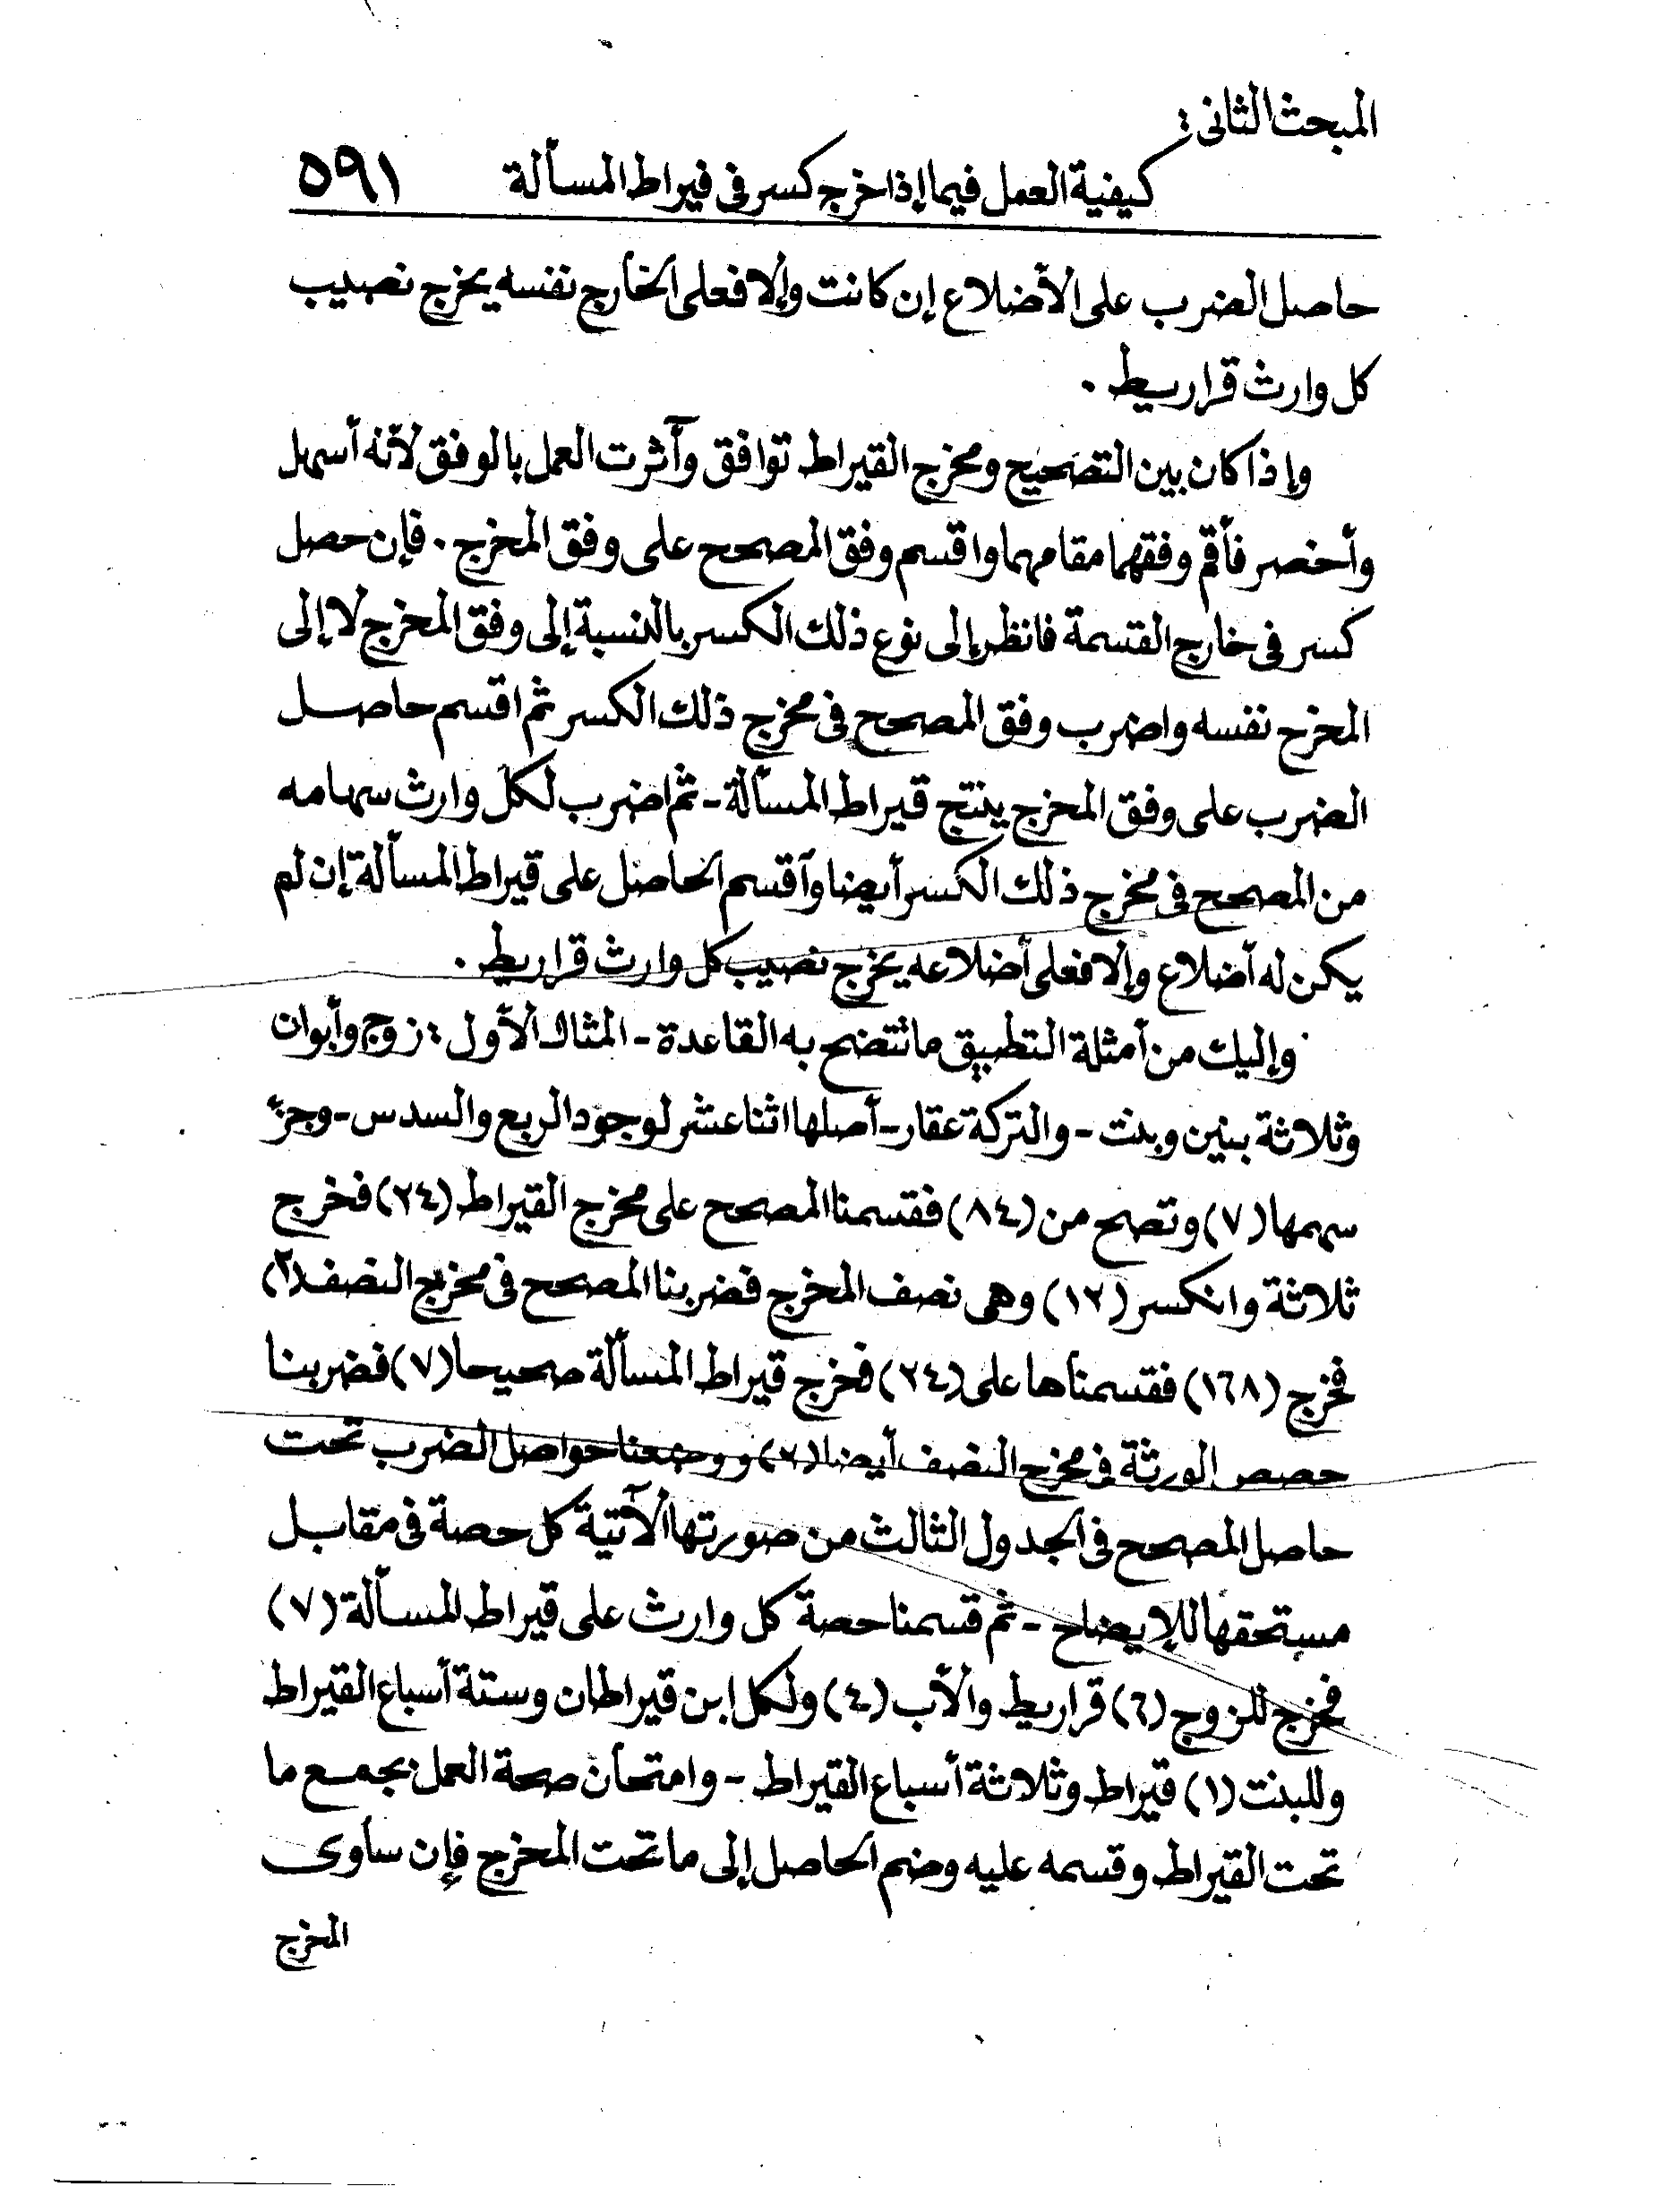 المبحث الثانى :
كيفية العمل فيما إذا خرج كسر فى قيراط المسألة ٥٩١
حاصل الضرب على الأضلاع إن كانت وإلا فعلى الخارج نفسه يخرج نصيب
كل وارث قراريط .
وإذا كان بين التصحيح ومخرج القيراط توافق وآثرت العمل بالوفق لأنه أسهل
وأخصر فأقم وفقهما مقامهما واقسم وفق المصحح على وفق المخرج . فإن حصل
كسر فى خارج القسمة فانظر إلى نوع ذلك الكسر بالنسبة إلى وفق المخرج لا إلى
المخرج نفسه واضرب وفق المصحح فى مخرج ذلك الكسر ثم اقسم حاصل
الضرب على وفق المخرج ينتج قيراط المسألة - ثم اضرب لكل وارث سهامه
من المصحح فى مخرج ذلك الكسر أيضا وآقسم الحاصل على قيراط المسألة إن لم
يكن له أضلاع وإلا فعلى أضلاعه يخرج نصيب كل وارث قراريط .
وإليك من أمثلة التطبيق ما تتضح به القاعدة - المثال الأول : زوج وأبوان
وثلاثة بنين وبنت - والتركة عقار - أصلها اثنا عشر لوجود الربع والسدس - وجزء
سهمها (٧) وتصح من (٨٤) فقسمنا المصحح على مخرج القيراط (٢٤) فخرج
ثلاثة وانكسر (١٢) وهى نصف المخرج فضربنا المصحح فى مخرج النصف (٢)
فخرج (١٦٨) فقسمناها على (٢٤) فخرج قيراط المسألة صحيحا (٧) فضربنا
حصص الورثة فى مخرج النصف أيضا (٢) ووضعنا حواصل الضرب تحت
حاصل المصحح فى الجدول الثالث من صورتها الآتية كل حصة فى مقابل
مستحقها للإيضاح - ثم قسمنا حصة كل وارث على قيراط المسألة (٧)
فخرج للزوج (٦) قراريط والأب (٤) ولكل ابن قيراطان وستة أسباع القيراط
وللبنت (١) قيراط وثلاثة أسباع القيراط - وامتحان صحة العمل بجمع ما
تحت القيراط وقسمه عليه وضم الحاصل إلى ما تحت المخرج فإن ساوى
المخرج